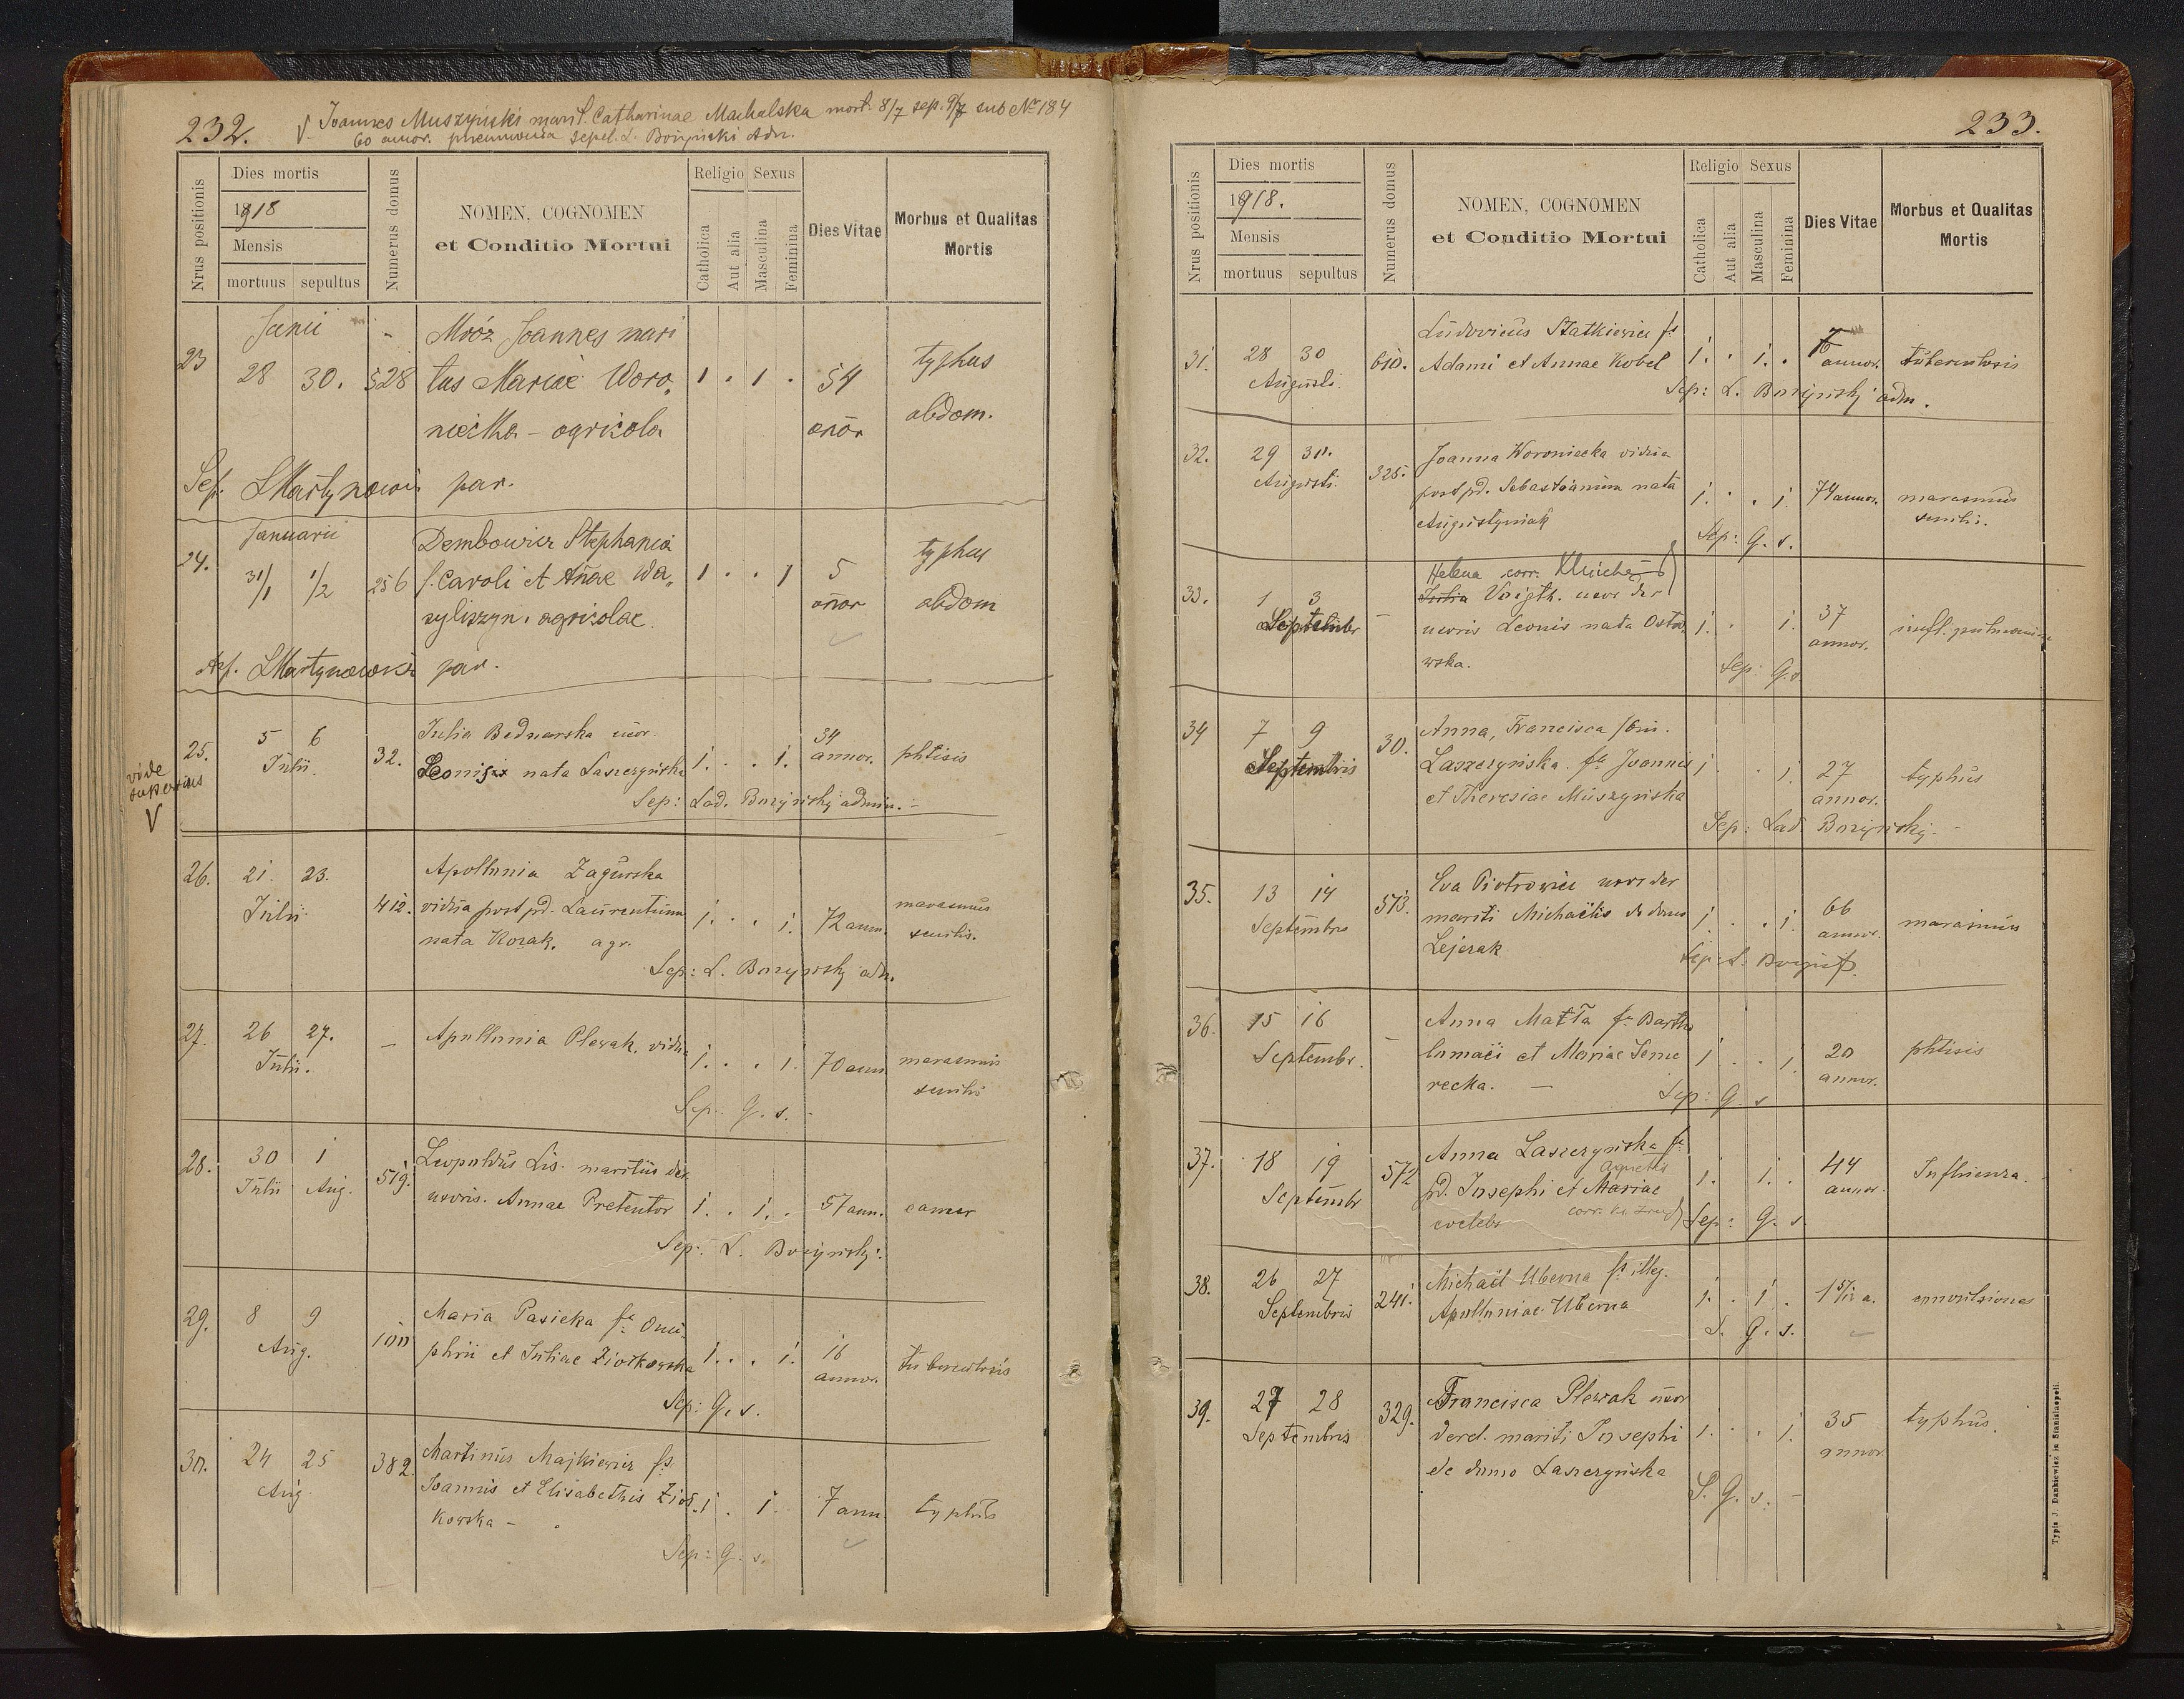 232.
V. Joannes Muszyński marit. Catharinae Machalska mort. 8/7 sep. 9/7 sub No 184
60 annor. pneumonia sepel. L. Bożyński Adm.
Nrus positionis
Dies mortis
1918
Mensis
mortuus sepultus
Numerus domus
NOMEN, COGNOMEN
et Conditio Mortui
Religio
Catholica
Aut alia
Sexus
Masculina
Feminina
Dies Vitae
Morbus et Qualitas
Mortis
23
28 30. 528
Mróz Joannes mari
tus Mariae Woro„
niecka – agricola
1 . 1 .
54
typhus
abdom.
Sep. LMartynowicz par.
24.
Januarii
31/1 1/2 256
Dembowicz Stephania
f. Caroli et Añae Wa„
syliszyn. agricolae
1 . . 1
5
typhus
abdom
LMartynowicz par.
vide
superius
V
25.
5 6
Julii.
32.
Julia Bednarska uxor
Leonis nata Laszczyńska
1. . . 1.
34
annor.
phtisis
Sep: Lad. Bożyński admin. –
26.
21. 23.
Julii
412.
Apollonia Zagórska
vidua post pd. Laurentium
nata Kozak. agr.
1. . . 1.
72 ann.
marasmus
senilis.
Sep: L. Bożyński adm.
27.
26 27.
Julii.
–
Apollonia Plewak, vidua
1. . . 1.
70 ann
marasmus
senilis
Sep: q. s. –
28.
30 1
Julii Aug.
519.
Leopoldus Lis. maritus der.
uxoris. Annae Pretentor
1. . 1. .
57 ann.
cancer
Sep: L. Bożyński.
29.
8 9
Aug.
100
Maria Pasicka fa Onu„
phrii et Juliae Ziołkowska
1. . . 1.
16
annor.
tuberculosis
Sep: q. s.
30.
24 25
Aug.
382.
Martinus Majkiewicz fs.
Joannis et Elisabethis Zioł„
kowska –
1 . 1
7 ann.
typhus
Sep: q. s.
233.
Nrus positionis
Dies mortis
1918.
Mensis
mortuus sepultus
Numerus domus
NOMEN, COGNOMEN
et Conditio Mortui
Religio
Catholica
Aut alia
Sexus
Masculina
Feminina
Dies Vitae
Morbus et Qualitas
Mortis
31.
28 30
Augusti.
610.
Ludovicus Statkiewicz fs
Adami et Annae Kobel
1. . 1. .
annor.
tuberculosis
Sep: L. Bożyński adm.
32.
29 30.
Augusti.
325.
Joanna Woroniecka vidua
post pd. Sebastianum nata
Augustyniak
1. . . 1
74 annor.
marasmus
senilis.
Sep: q. s.
33.
1 3
Septembr
–
Helena corr.
Julia Voigth. uxor der
uxoris Leonis nata Ostro„
wska.
1. . 1.
37
annor.
Sep: q. s
34
7 9
Septembris
30.
Anna, Francisca
Laszczyńska fa Joannis
et Theresiae Muszyńska
1 . . 1.
27
annor.
typhus
Sep: Lad. Bożyński. –
35.
13 14
Septembris
513.
Eva Piotrowicz uxor der
mariti Michaëlis de domo
Lejczak
1 . . 1.
66
annor.
marasmus
36.
15 16
Septembr.
–
Anna Matła fa Bartho
lomaëi et Mariae Seme
recka. –
1 . . 1.
20
annor.
phtisis
Sep: q. s
37.
18 19
Septembr
572
Anna Laszczyńska fa
Agnetis
pd. Josephi et Mariae
coelebs
1. . 1. .
44
annor.
Influenza.
Sep: q. s
38.
26 27
Septembris
241.
Michaël Uberna fs illeg.
Apolloniae Uberna
1. . 1 .
1 5/12 a.
convulsiones
S. q. s.
39.
27 28
Septembris
329.
Francisca Plewak uxor
derel. mariti Josephi
de domo Laszczyńska
1. . . 1.
35
annor
typhus.
S. q. s. –
Typis J. Dankiewicz in Stanislaopoli.